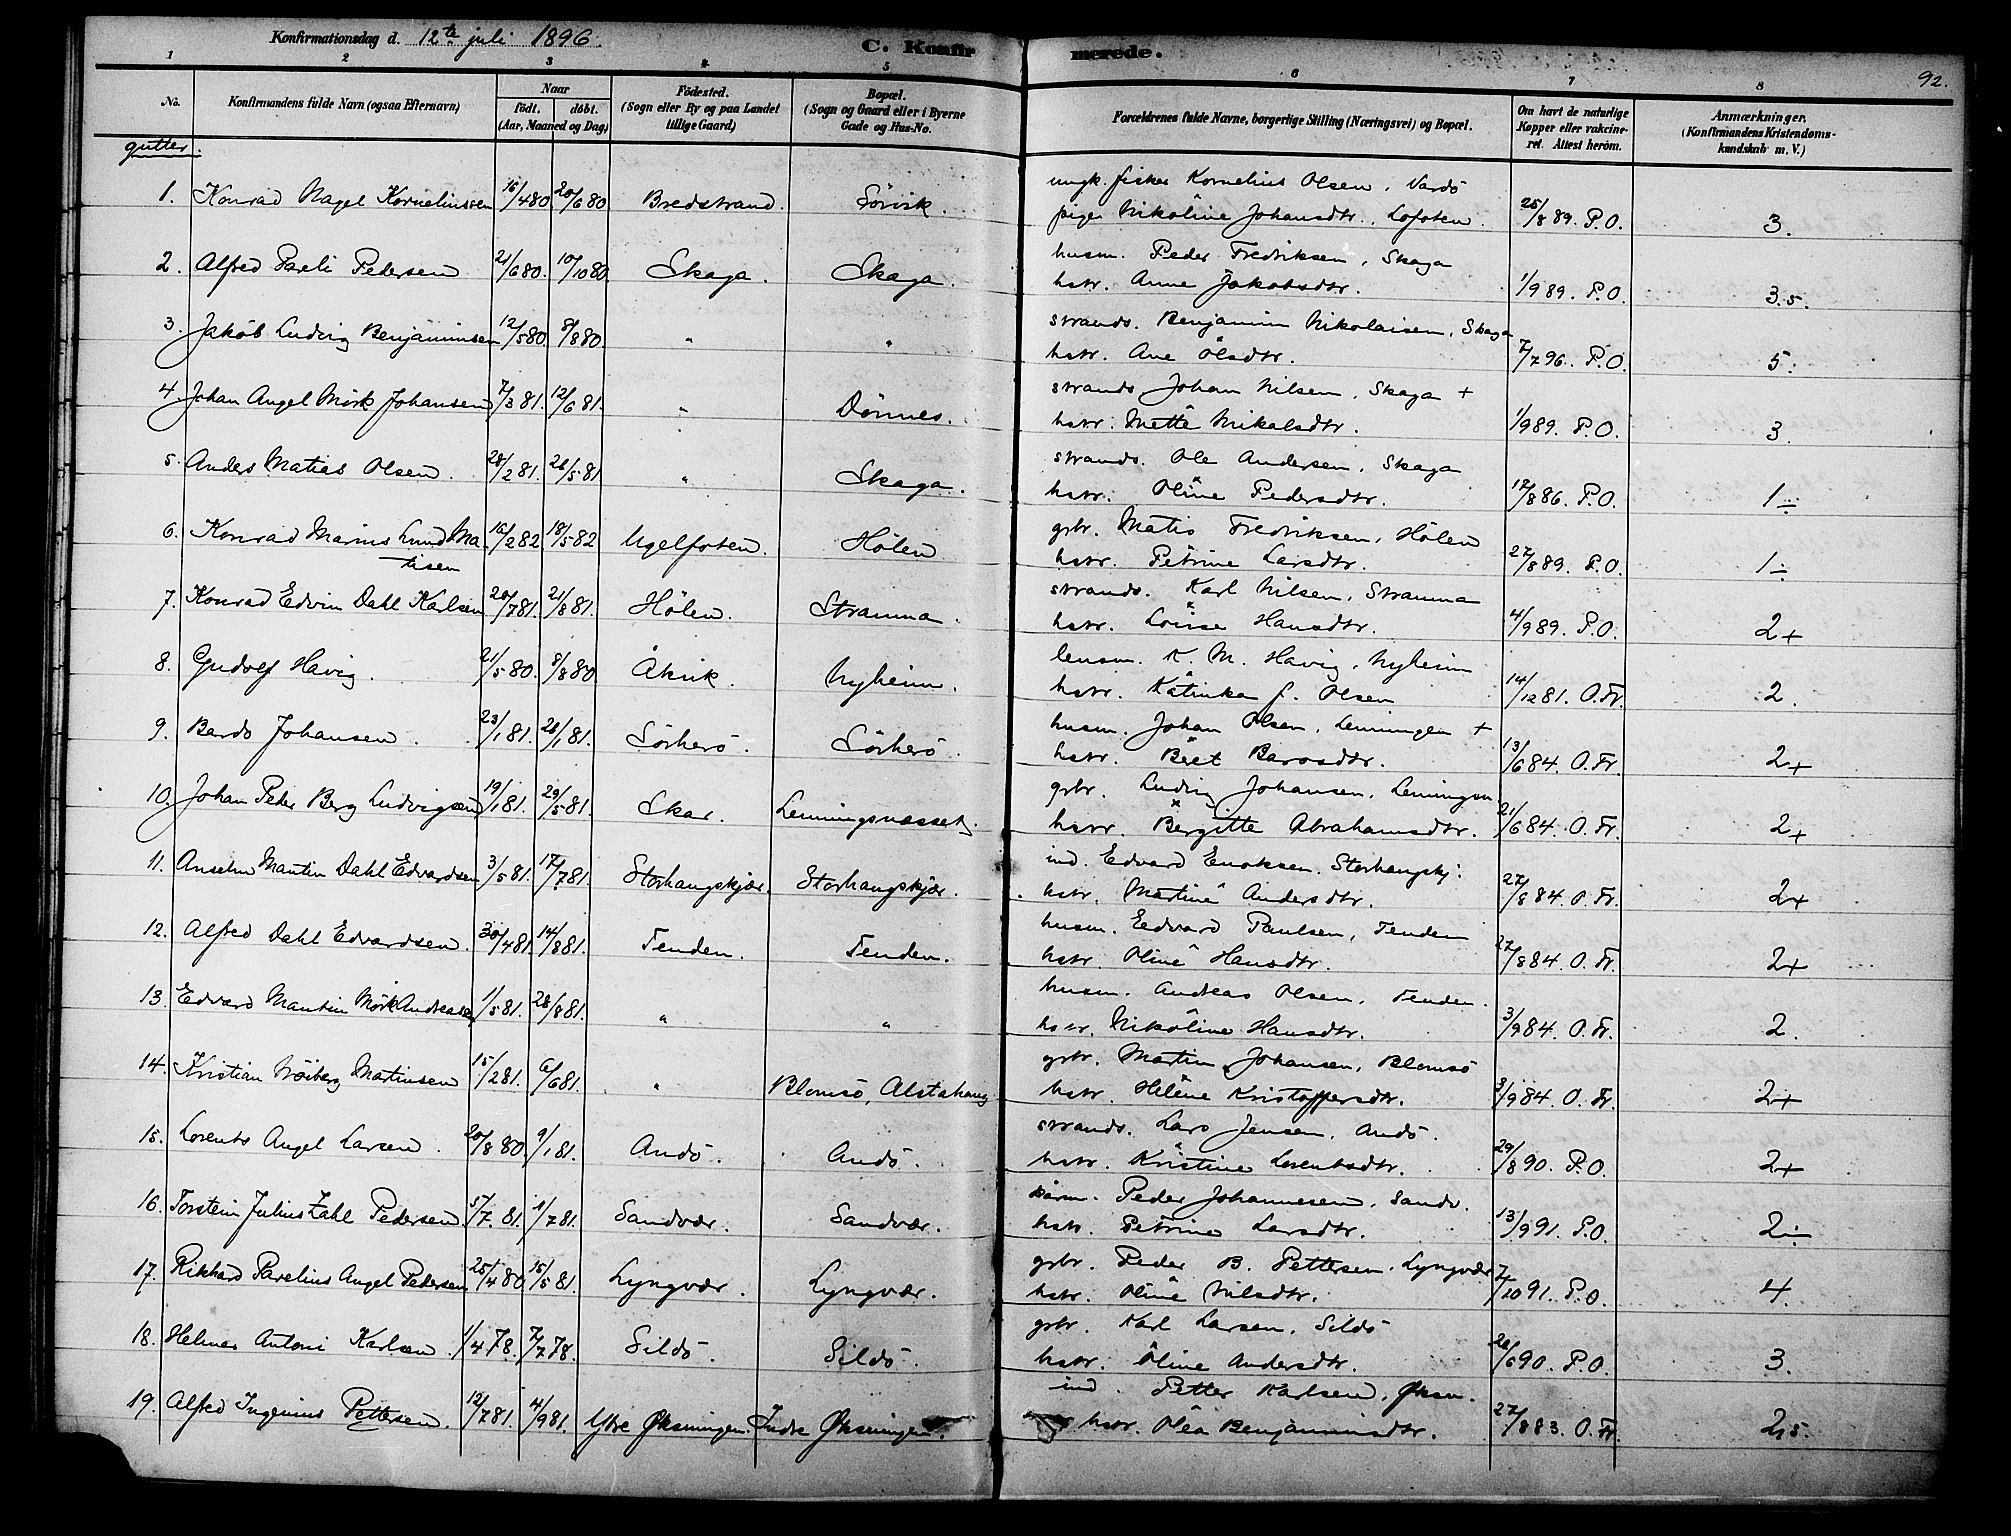 Konfirmationsdag d. 12te juli 1896.
C. Konfirmerede.
92.
1 2 3 4 5 6 7 8
No.
Konfirmandens fulde Navn (ogsaa Efternavn)
Naar
födt. döbt.
(Aar, Maaned og Dag)
Födested.
(Sogn eller By og paa Landet
tillige Gaard)
Bopæl.
(Sogn og Gaard eller i Byerne
Gade og Hus-No.
Forældrenes fulde Navne, borgerlige Stilling (Næringsvei) og Bopæl.
Om havt de naturlige
Kopper eller vakcine-
ret. Attest herom.
Anmærkninger.
(Konfirmandens Kristendoms-
kundskab m. V.)
gutter.
ungk. fisker Kornelius Olsen, Vardö
1. Konrad Nagel Korneliussen 16/4 80 20/6 80 Bredstrand Sörvik. pige Nikoline Johansdtr., Lofoten. 25/8 89. P.O. 3.
husm. Peder Fredriksen, Skaga
2. Alfred Pareli Pedersen 21/6 80. 10/10 80. Skaga. Skaga. hstr. Anne Jakobsdtr. 1/9 89. P.O. 3.5.
strands. Benjamin Nikolaisen, Skaga
3. Jakob Ludvig Benjaminsen 12/5 80. 8/8 80. " " hstr. Ane Olsdtr. 7/7 96. P.O. 5.
strands Johan Nilsen, Skaga +
4. Johan Angel Mörk Johansen 7/3 81. 12/6 81. " Dönnes. hstr. Mette Nikolsdtr. 1/9 89. P.O. 3.
strands. Ole Andersen, Skaga
5. Anders Matias Olsen. 28/2 81. 26/5 81 " Skaga. hstr. Oline Pedersdtr. 17/8 86. P.O. 1÷
grbr. Matis Fredriksen, Hölen
6. Konrad Marius Lund Ma-
tisen 16/2 82 18/5 82 Ugelfoten. Hölen hstr. Petrine Larsdtr. 27/8 89. P.O. 1÷
strands. Karl Nilsen, Stramma
7. Konrad Edvin Dahl Karlsen 20/7 81. 21/8 81. Hölen. Stramma. hstr. Lovise Hansdtr. 4/9 89. P.O. 2+
lensm. K. M. Havig, Nyheim
8. Gudolf Havig. 21/5 80. 8/8 80 Åkvik. Nyheim. hstr. Katinka f. Olsen 14/12 81. O.Fr. 2.
husm. Johan Olsen, Lenningen +
9. Bardo Johansen. 23/1 81. 28/1 81. Sörherö. Sörherö. hstr. Beret Barosdtr. 13/6 84. O.Fr. 2+
grbr. Ludvig Johansen, Lenningen
10. Johan Peder Berg Ludvigsen 19/1 81. 29/5 81. Skar. Lenningsnesset. hstr. Bergitte Abrahamsdtr. 21/6 84. O.Fr. 2+
ind. Edvard Enoksen, Storhaugskj.
11. Anselm Mantin Dahl Edvardsen 3/5 81. 17/7 81. Storhaugskjær. Storhaugskjær. hstr. Martine Andersdtr. 27/8 84. O.Fr. 2+
husm. Edvard Paulsen, Tenden
12. Alfred Dahl Edvardsen. 30/4 81. 14/8 81. Tenden. Tenden. hstr. Oline Hansdtr. 27/8 84. O.Fr. 2+
husm. Andreas Olsen, Tenden.
13. Edvard Mantin Mörk Andreassen 1/5 81. 28/8 81. " " hstr. Nikoline Hansdtr. 3/9 84. O.Fr. 2.
grbr. Martin Johansen, Blomsö
14. Kristian Nöiberg Martinsen 15/2 81. 6/6 81. " Blomsö, Alstahaug hstr. Helene Kristoffersdtr. 3/9 84. O.Fr. 2+
strands. Lars Jensen, Andö.
15. Lorents Angel Larsen. 20/8 80. 9/1 81. Andö. Andö. hstr. Kristine Lorentsdtr. 29/8 90. P.O. 2+
Peder Johannesen, Sandv.
16. Torstein Julius Zahl Pedersen. 5/7 81. 1/7 81. Sandvær. Sandvær. hstr. Petrine Larsdtr. 13/9 91. P.O. 2÷
grbr. Peder B. Pettersen. Lyngvær
17. Rikhard Parelius Angel Pedersen 25/4 80 15/5 81. Lyngvær. Lyngvær. hstr. Oline Nilsdtr. 7/10 91. P.O. 4.
grbr. Karl Larsen, Sildö
18. Helmer Antoni Karlsen. 1/4 78. 7/7 78. Sildö. Sildö. hstr. Oline Andersdtr. 28/6 90. P.O. 3.
ind. Petter Karlsen, Øksn.
19. Alfred Ingenius Pettersen. 12/7 81. 4/9 81. Ytre Øksningen. Indre Øksningen. hstr. Olea Benjaminsdtr. 27/8 83. O.Fr. 2,5.